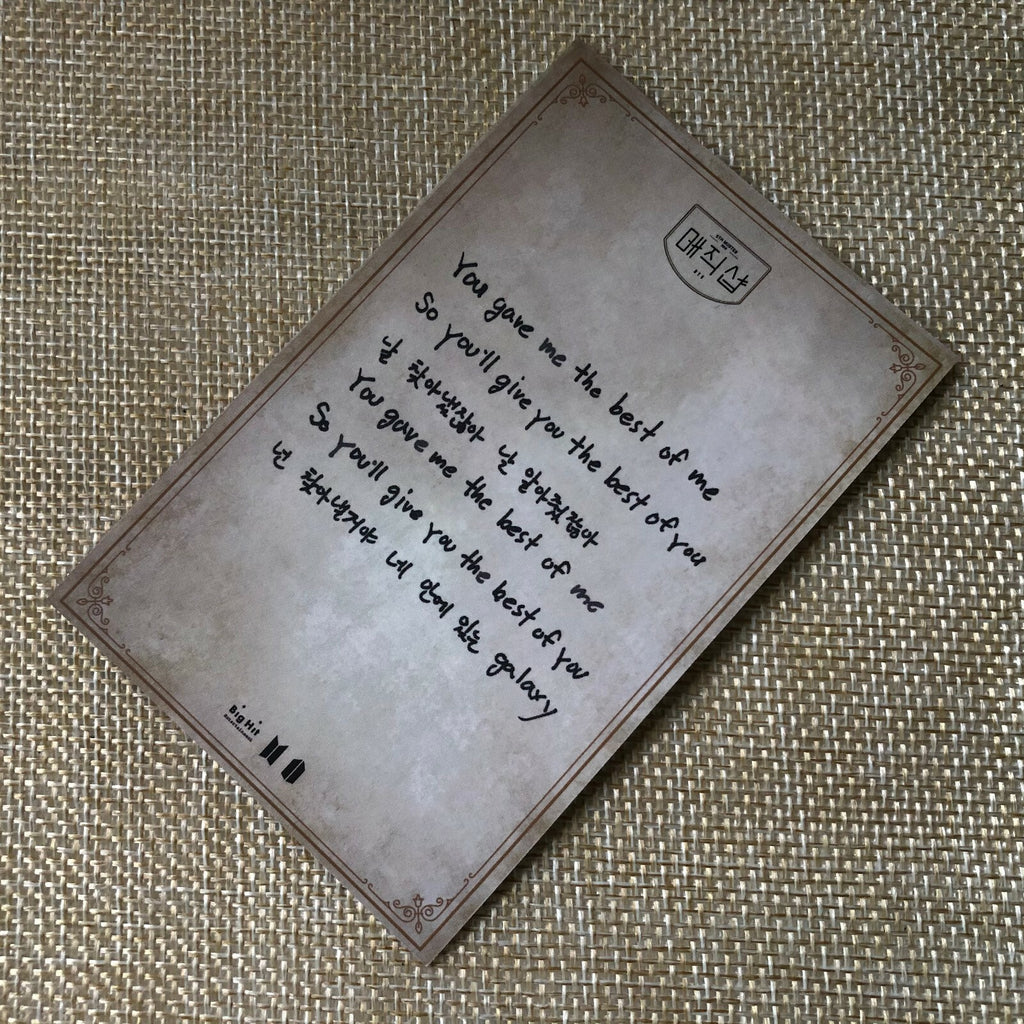 매직샵
You gave me the best of me
So you'll give you the best of you
날 찾아냈잖아 날 알아줬잖아
You gave me the best of me
So you'll give you the best of you
넌 찾아낼거야 네 안에 있는 galaxy
Big Hit
ENTERTAINMENT